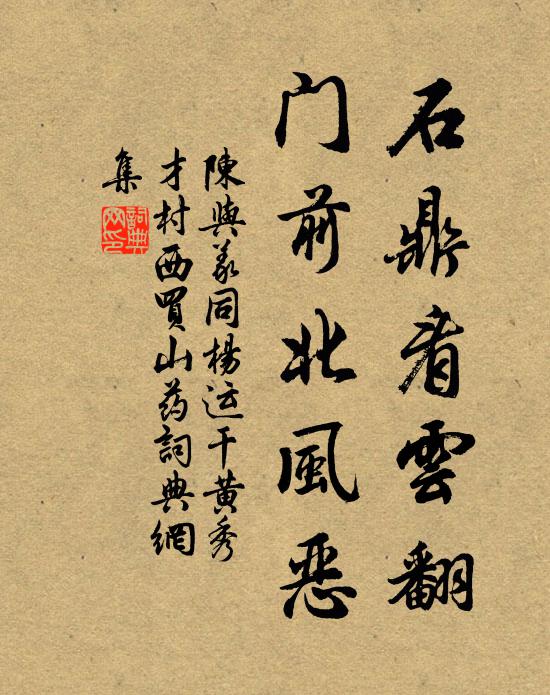 石鼎看雲翻
门前北風惡
陳與義同楊运干黄秀
才村西買山药詞典網
集
詞典
网印